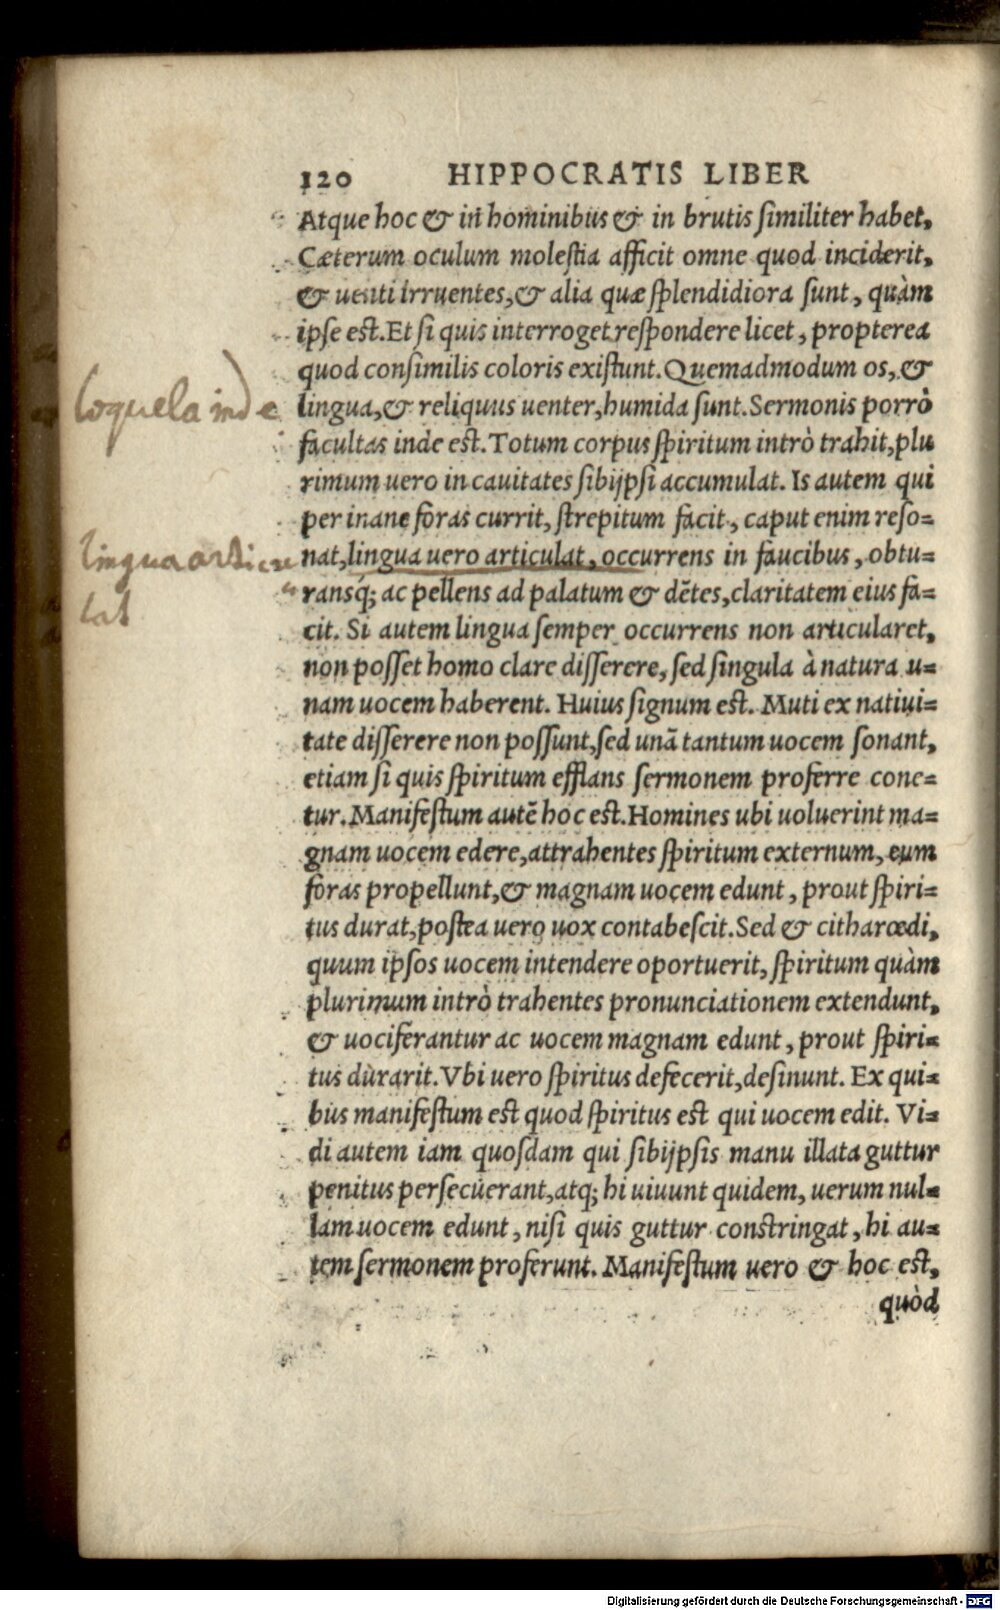 120 HIPPOCRATIS LIBER
Atque hoc & in hominibus & in brutis similiter habet.
Cæterum oculum molestia afficit omne quod inciderit,
& uenti irruentes, & alia quæ splendidiora sunt, quàm
ipse est. Et si quis interroget respondere licet, propterea
quod consimilis coloris existunt. Quemadmodum os, &
loquela inde
lingua, & reliquus uenter, humida sunt. Sermonis porrò
facultas inde est. Totum corpus spiritum intrò trahit, plu
rimum uero in cauitates sibijpsi accumulat. Is autem qui
per inane foras currit, strepitum facit, caput enim reso=
lingua articu
lat
nat, lingua uero articulat, occurrens in faucibus, obtu=
ransq́; ac pellens ad palatum & dẽtes, claritatem eius fa=
cit. Si autem lingua semper occurrens non articularet,
non posset homo clare disserere, sed singula à natura u=
nam uocem haberent. Huius signum est. Muti ex natiui=
tate disserere non possunt, sed unã tantum uocem sonant,
etiam si quis spiritum efflans sermonem proferre cone=
tur. Manifestum autẽ hoc est. Homines ubi uoluerint ma=
gnam uocem edere, attrahentes spiritum externum, eum
foras propellunt, & magnam uocem edunt, prout spiri=
tus durat, postea uero uox contabescit. Sed & citharœdi,
quum ipsos uocem intendere oportuerit, spiritum quàm
plurimum intrò trahentes pronunciationem extendunt,
& uociferantur ac uocem magnam edunt, prout spiri=
tus durarit. Vbi uero spiritus defecerit, desinunt. Ex qui=
bus manifestum est quod spiritus est qui uocem edit. Vi=
di autem iam quosdam qui sibijpsis manu illata guttur
penitus persecuerant, atq; hi uiuunt quidem, uerum nul=
lam uocem edunt, nisi quis guttur constringat, hi au=
tem sermonem proferunt. Manifestum uero & hoc est,
quòd
Digitalisierung gefördert durch die Deutsche Forschungsgemeinschaft - DFG